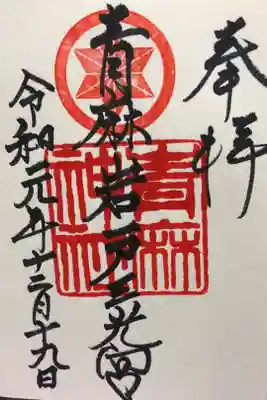 奉拝
青麻岩戸三光宮
令和元年十二月十九日
青麻
神社